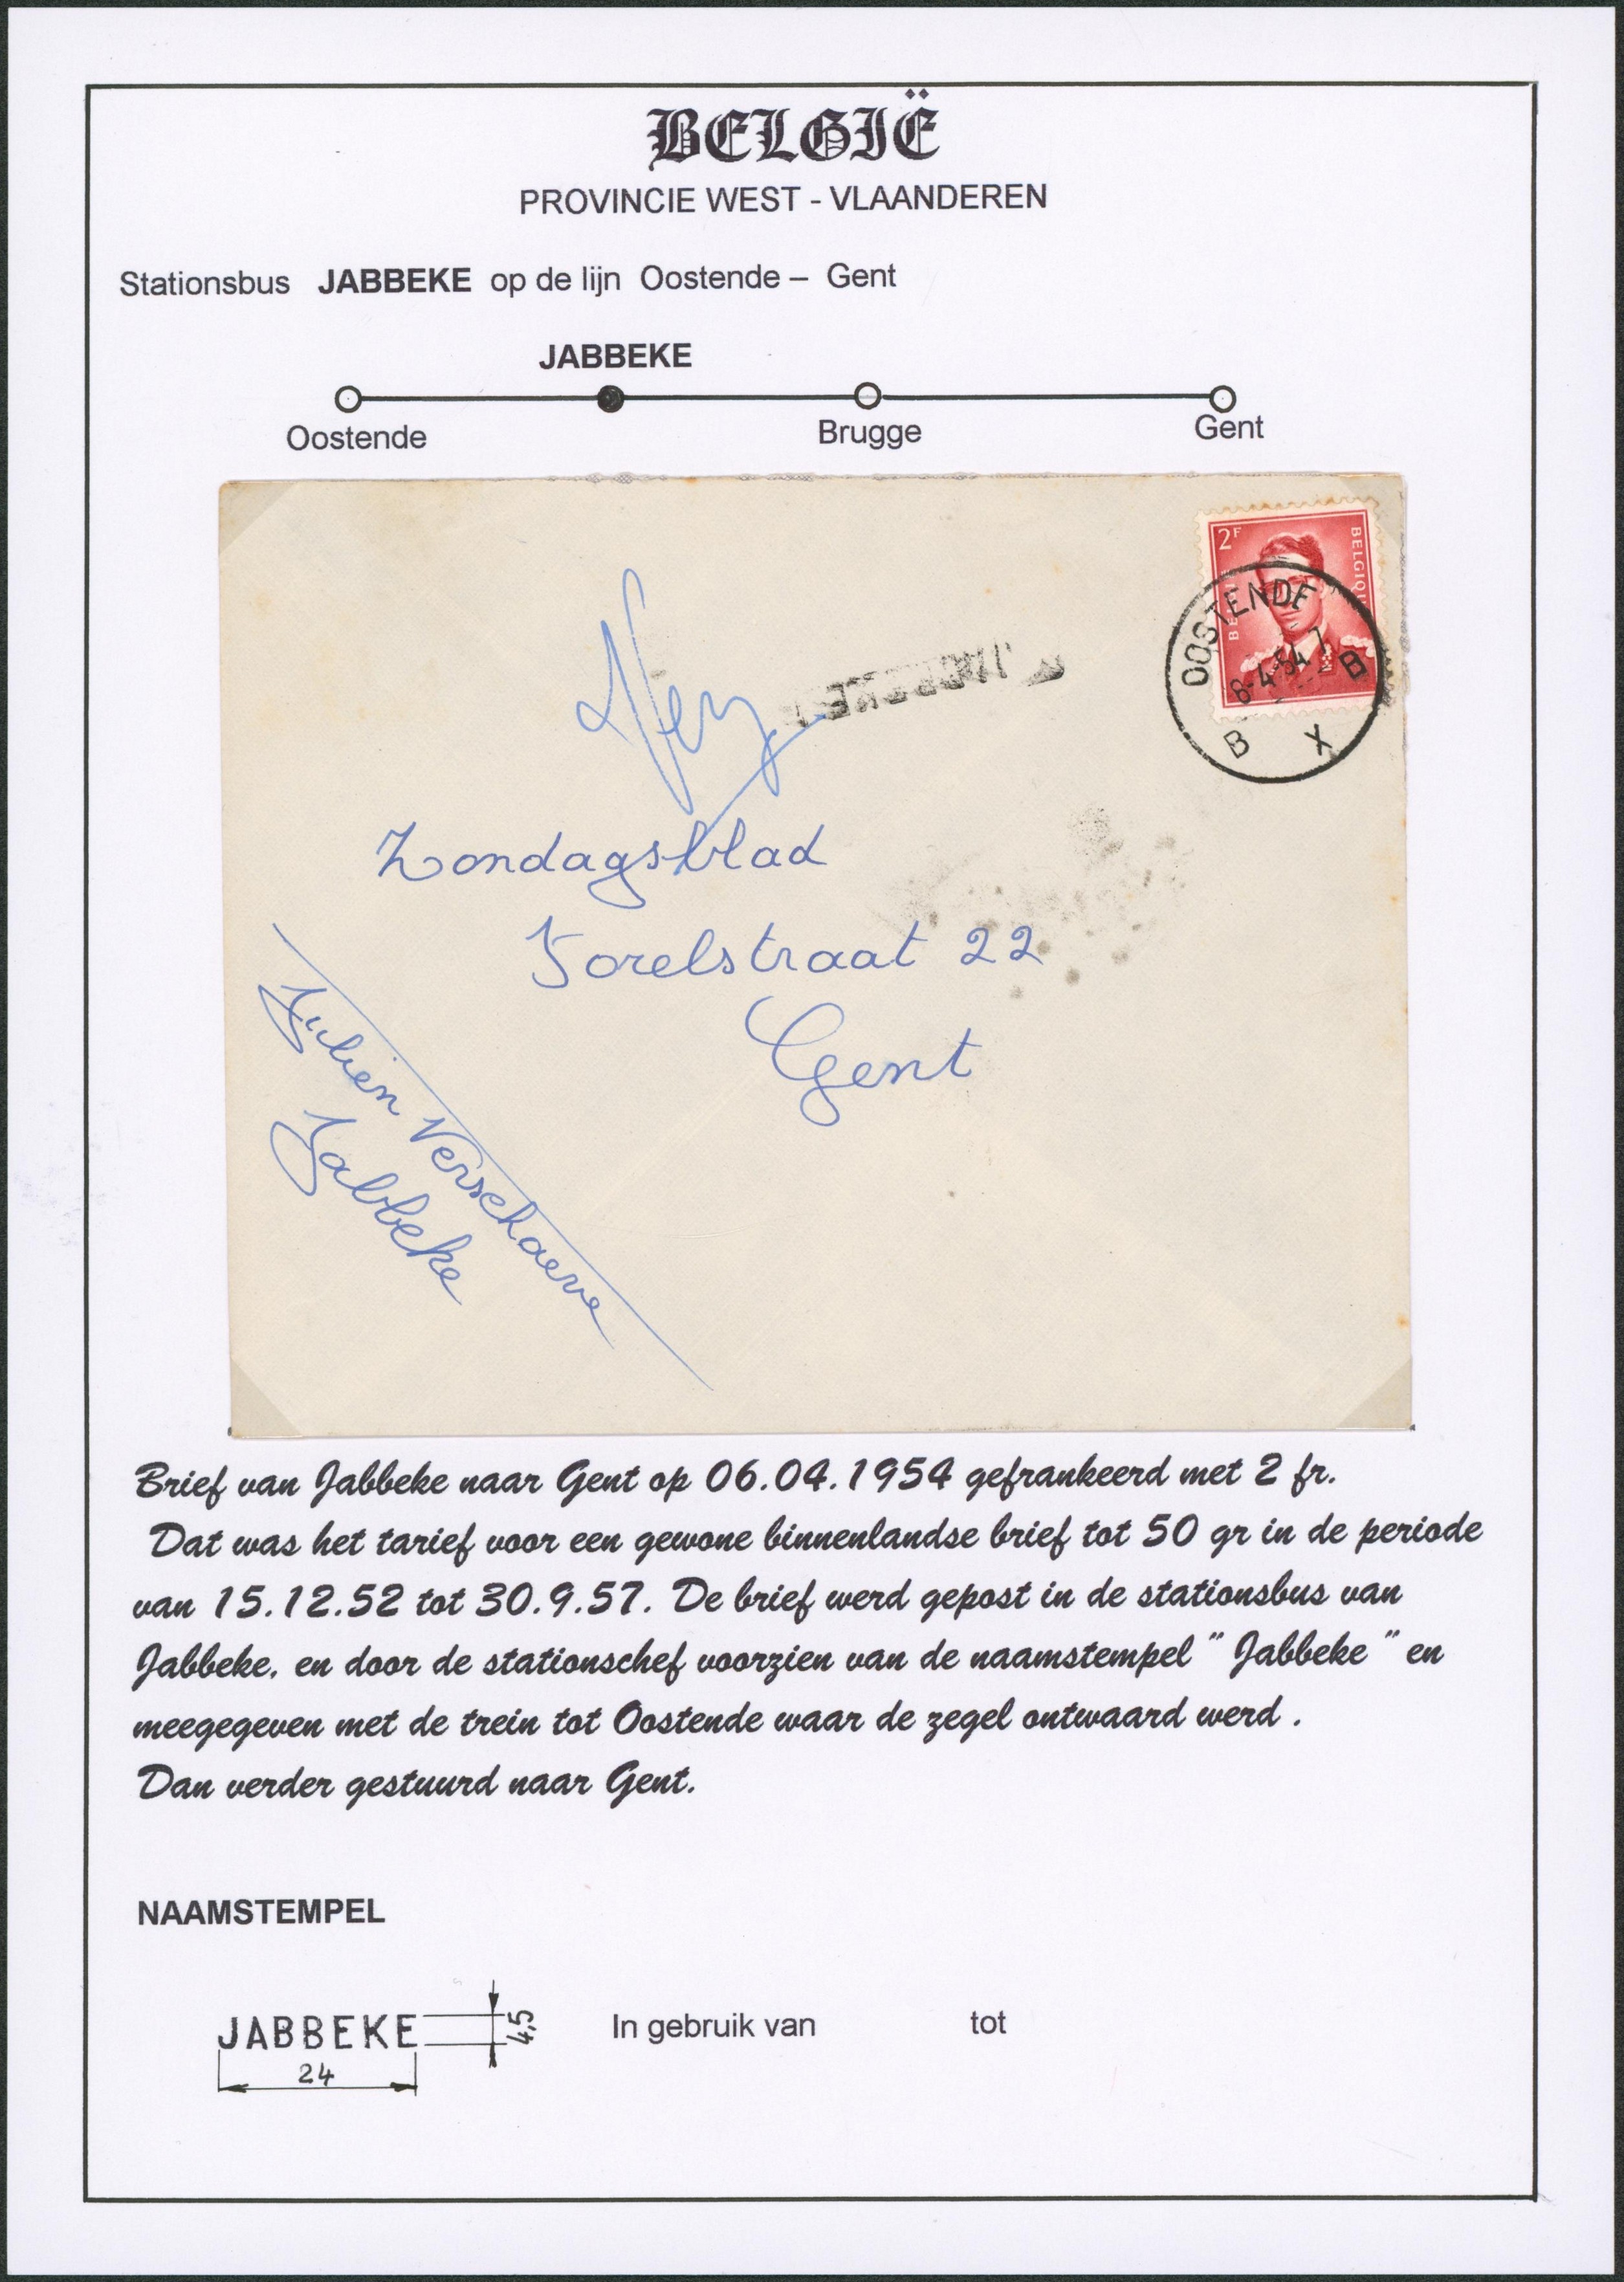 BELGIË
PROVINCIE WEST - VLAANDEREN
Stationsbus JABBEKE op de lijn Oostende – Gent
JABBEKE
Oostende Brugge Gent
2F
BELGIQUE
OOSTENDE
6-4-54
B
B X
JABBEKE
Zondagsblad
Forelstraat 22
Gent
Julien Verschaeve
Jabbeke
Brief van Jabbeke naar Gent op 06.04.1954 gefrankeerd met 2 fr.
Dat was het tarief voor een gewone binnenlandse brief tot 50 gr in de periode
van 15.12.52 tot 30.9.57. De brief werd gepost in de stationsbus van
Jabbeke, en door de stationschef voorzien van de naamstempel " Jabbeke " en
meegegeven met de trein tot Oostende waar de zegel ontwaard werd .
Dan verder gestuurd naar Gent.
NAAMSTEMPEL
JABBEKE 4,5 In gebruik van tot
24